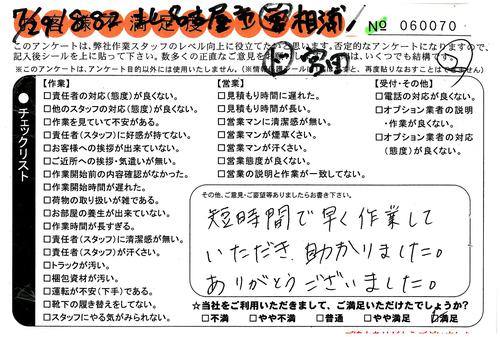 お客様満足度
№ 060070
このアンケートは、弊社作業スタッフのレベル向上に役立てたいと思います。否定的なアンケートになりますので、
記入後シールを上に貼って下さい。数多くの正直なご意見を
は、いくつでも結構です。
※このアンケートは、アンケート目的以外には使用いたしません。
チェックリスト
【作業】
□責任者の対応(態度)が良くない。
□他のスタッフの対応(態度)が良くない。
□作業を見ていて不安がある。
□責任者(スタッフ)に好感が持てない。
□お客様への挨拶が出来ていない。
□ご近所への挨拶・気遣いが無い。
□作業開始前の内容確認がなかった。
□作業開始時間が遅れた。
□荷物の取り扱いが雑である。
□お部屋の養生が出来ていない。
□作業時間が長すぎる。
□責任者(スタッフ)に清潔感が無い。
□責任者(スタッフ)が汗くさい。
□トラックが汚い。
□梱包資材が汚い。
□運転が不安(下手)である。
□靴下の履き替えをしてない。
□スタッフにやる気がみられない。
【営業】
□見積もり時間に遅れた。
□見積もり時間が長い。
□営業マンに清潔感が無い。
□営業マンが煙草くさい。
□営業マンが汗くさい。
□営業態度が良くない。
□営業の説明と作業が一致してない。
【受付・その他】
□電話の対応が良くない。
□オプション業者の説明
・作業が良くない。
□オプション業者の対応
(態度)が良くない。
その他、ご意見・ご要望等ありましたらお書き下さい。
短時間で早く作業して
いただき、助かりました。
ありがとうございました。
☆当社をご利用いただきまして、ご満足いただけたでしょうか?
□不満 □やや不満 □普通 □やや満足 ☑満足